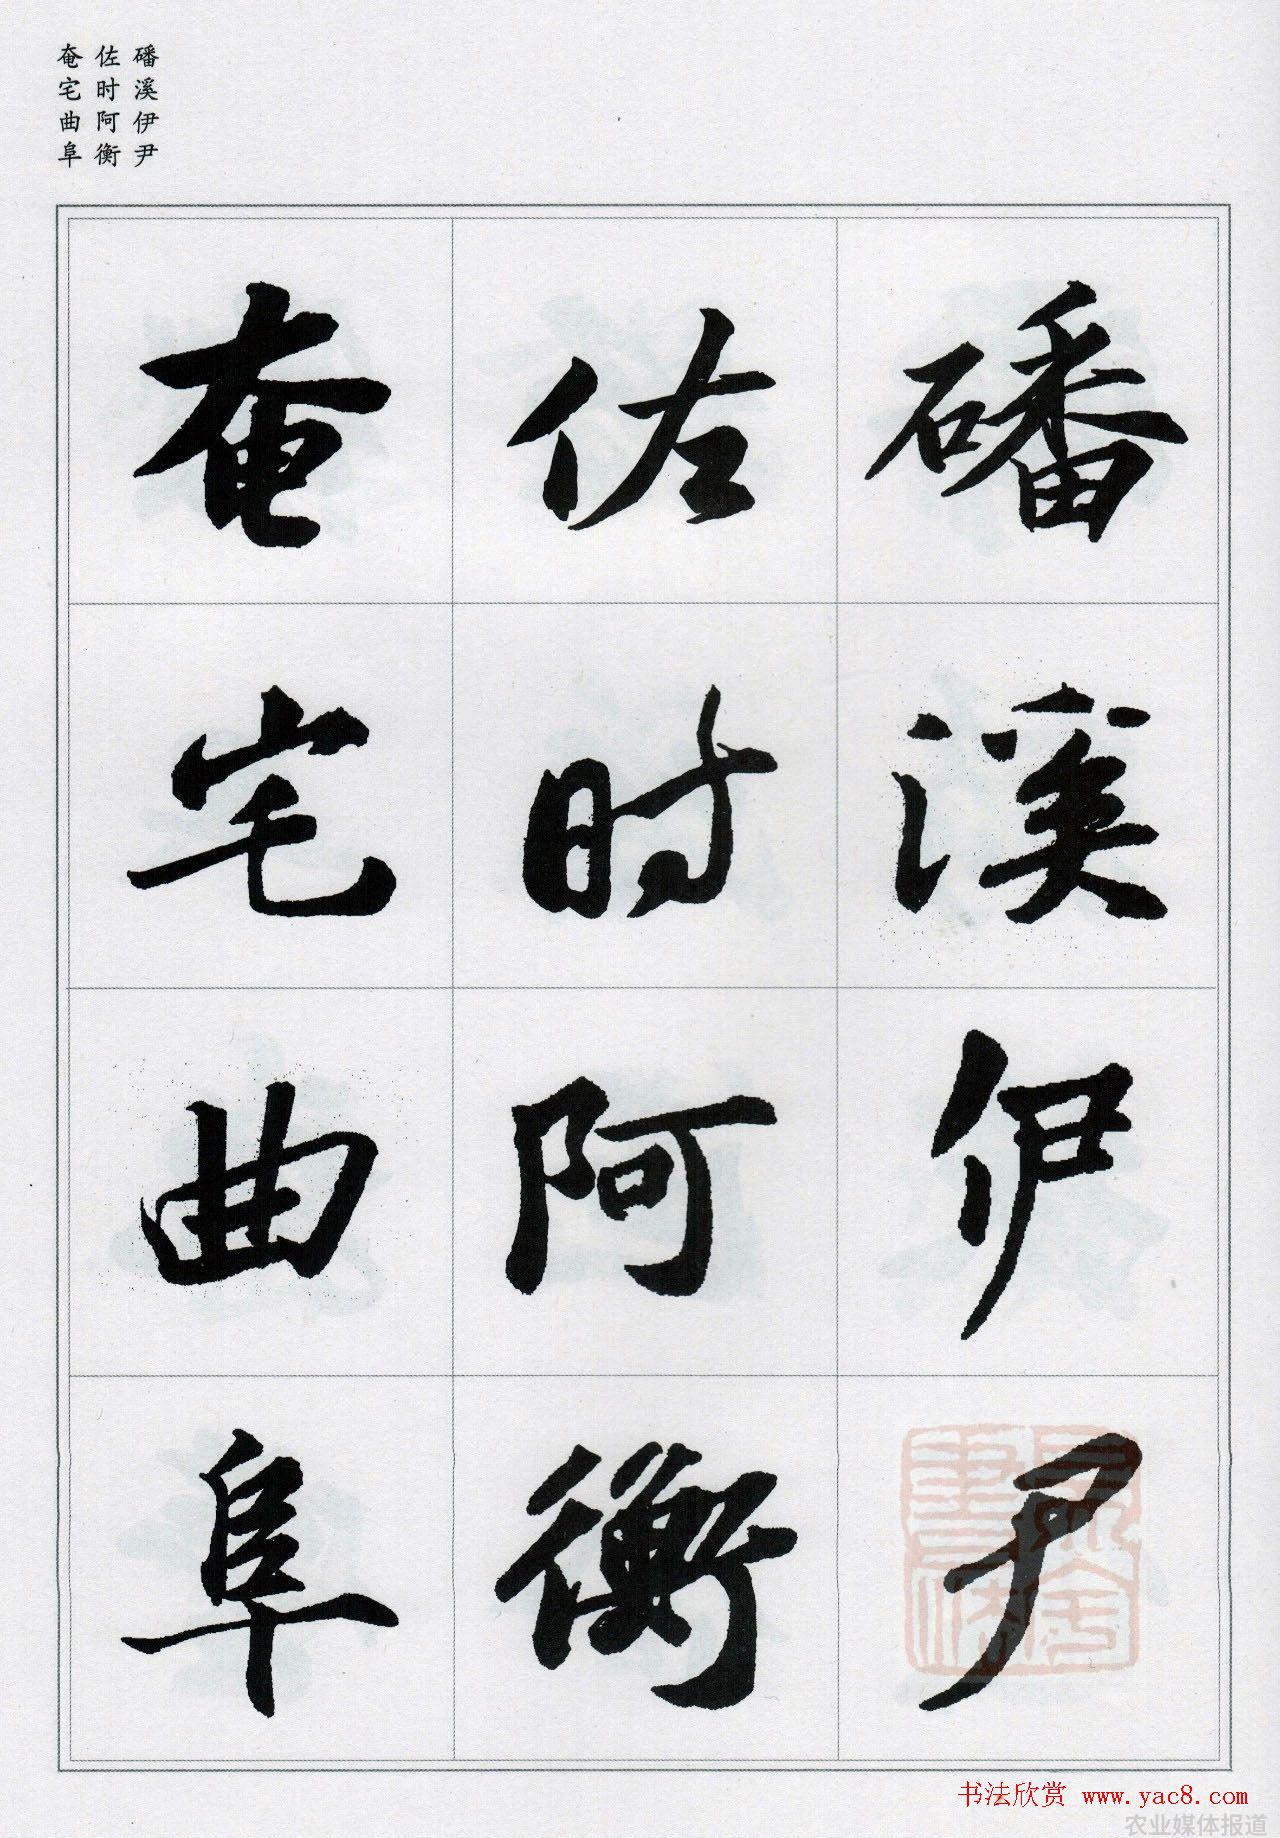 磻溪伊尹
佐时阿衡
奄宅曲阜
磻溪伊尹
佐时阿衡
奄宅曲阜
书法欣赏 www.yac8.com
农业媒体报道